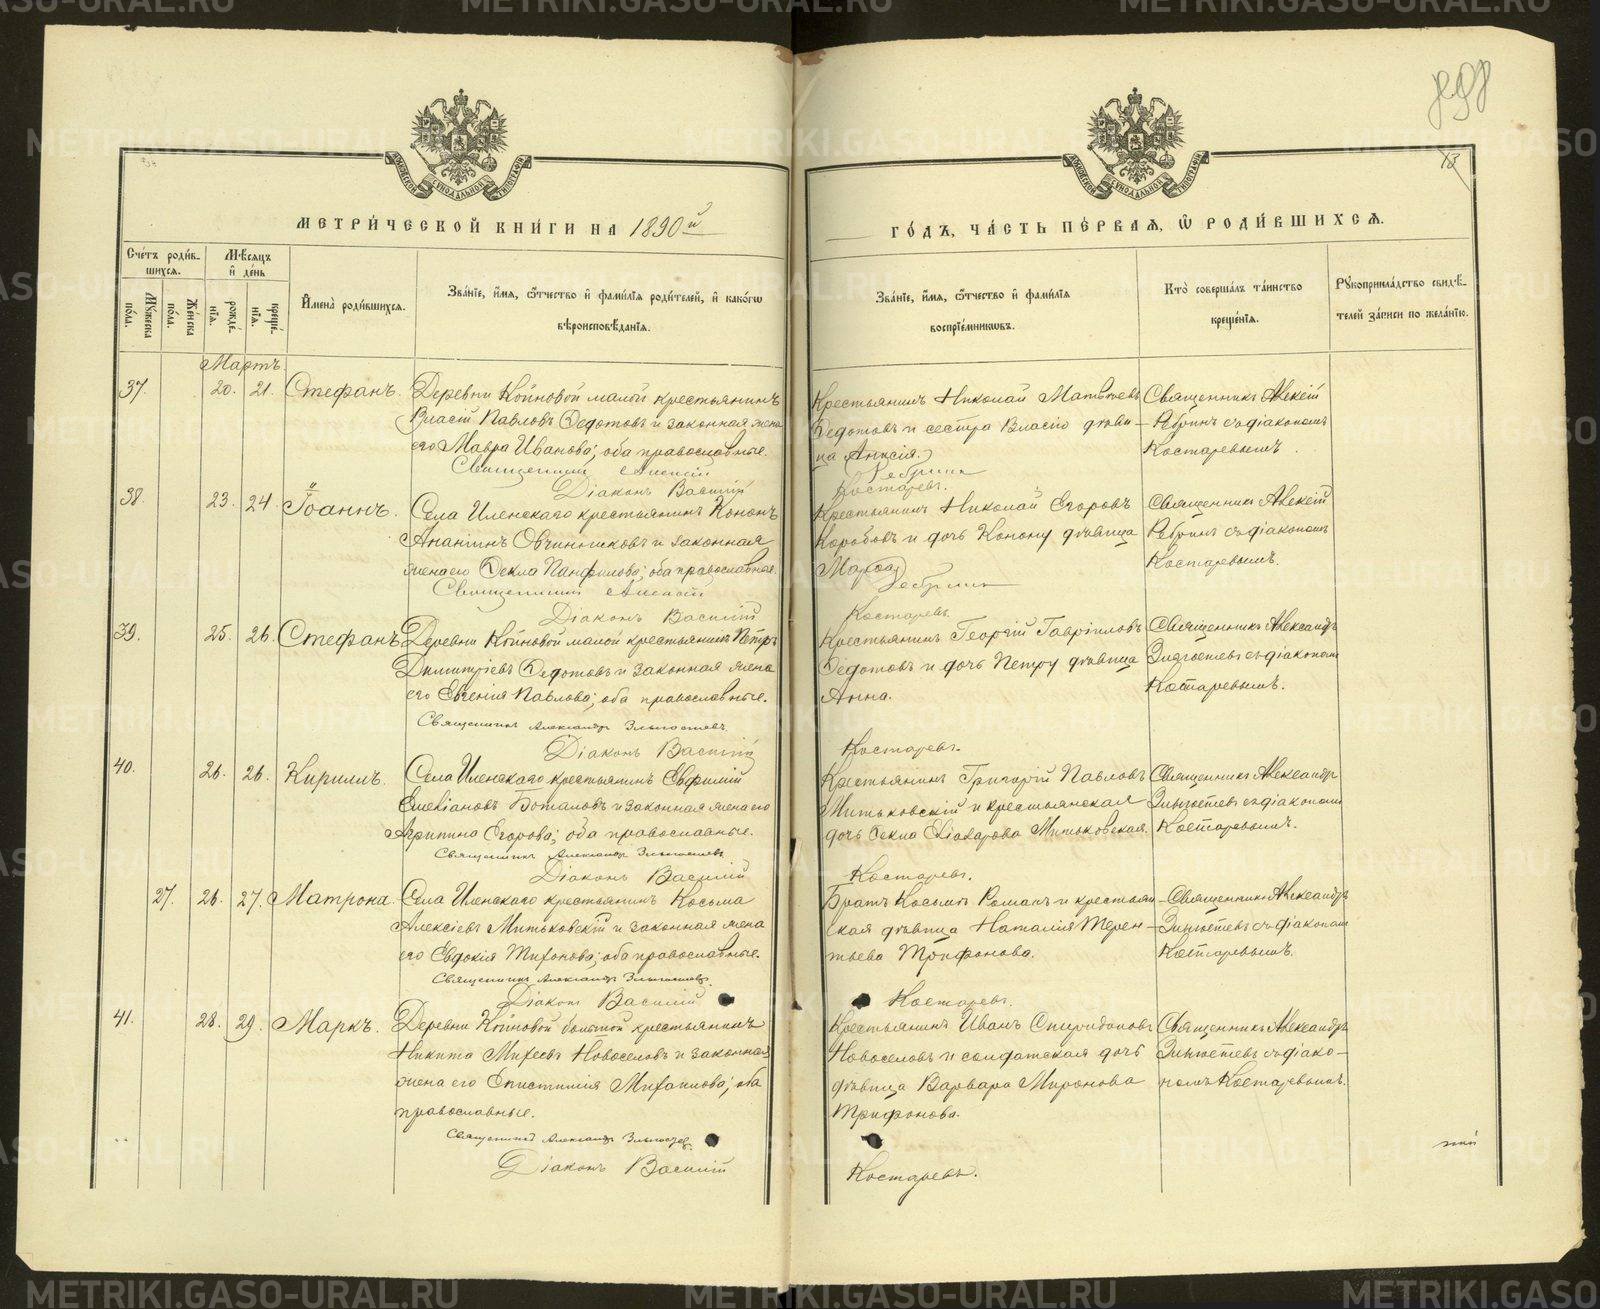 МЕТРИ́ЧЕСКОЙ КНИ́ГИ НА 1890й
ГО́ДЪ, ЧА́СТЬ ПЕ́РВАЯ, Ѡ РОДИ́ВШИХСЯ.
13
Сче́тъ роди́в-
шихся.
Му́жеска
по́ла.
Же́нска
по́ла.
Мѣ́сяцъ
и҆ де́нь
рожде́-
нїя.
креще́-
нїя.
И҆мена̀ роди́вшихся.
Зва́нїе, и҆́мя, ѻ҆́тчество и҆ фами́лїя роди́телей, и҆ како́гѡ
вѣроисповѣ́данїя.
Зва́нїе, и҆́мя, ѻ҆́тчество и҆ фами́лїя
воспрїе́мникѡвъ.
Кто̀ соверша́лъ та́инство
креще́нїя.
Рꙋкоприкла́дство свидѣ́-
телей за́писи по жела́нїю.
Мартъ.
37.
20.
21.
Стефанъ.
Деревни Койновой малой крестьянинъ
Власій Павловъ Ѳедотовъ и законная жена
его Мавра Иванова; оба православные.
Священникъ Алексій
Діаконъ Василій
Крестьянинъ Николай Матвѣевъ
Ѳедотовъ и сестра Власію дѣви-
ца Анисія.
Ребринъ
Костаревъ.
Священникъ Алексій
Ребринъ съ діакономъ
Костаревымъ.
38.
23.
24.
Іоаннъ.
Села Иленскаго крестьянинъ Кононъ
Ананіинъ Овчинниковъ и законная
жена его Ѳекла Панфилова; оба православные.
Священникъ Алексій
Діаконъ Василій
Крестьянинъ Николай Егоровъ
Коробовъ и дочь Конону дѣвица
Марѳа.
Ребринъ
Костаревъ.
Священникъ Алексій
Ребринъ съ діакономъ
Костаревымъ.
39.
25.
26.
Стефанъ.
Деревни Койновой малой крестьянинъ Петръ
Димитріевъ Ѳедотовъ и законная жена
его Евгенія Павлова; оба православные.
Священникъ Александръ
Діаконъ Василій
Крестьянинъ Георгій Гавріиловъ
Ѳедотовъ и дочь Петру дѣвица
Анна.
Костаревъ.
Священникъ Александръ
съ діакономъ
Костаревымъ.
40.
26.
26.
Кириллъ.
Села Иленскаго крестьянинъ Евфимій
Емеліановъ Боталовъ и законная жена его
Агрипина Егорова; оба православные.
Священникъ Александръ
Діаконъ Василій
Крестьянинъ Григорій Павловъ
Митьковскій и крестьянская
дочь Ѳекла Митьковская.
Костаревъ.
Священникъ Александръ
съ діакономъ
Костаревымъ.
27.
26.
27.
Матрона.
Села Иленскаго крестьянинъ Косьма
Алексіевъ Митьковскій и законная жена
его Евдокія Тихонова; оба православные.
Священникъ Александръ
Діаконъ Василій
Братъ Косьмѣ Романъ и крестьян-
ская дѣвица Наталія Терен-
тьева Трифонова.
Костаревъ.
Священникъ Александръ
съ діакономъ
Костаревымъ.
41.
28.
29.
Маркъ.
Деревни Койновой большой крестьянинъ
Никита Михеевъ Новоселовъ и законная
жена его Епистимія Михаилова; оба
православные.
Священникъ Александръ
Діаконъ Василій
Крестьянинъ Иванъ Спиридоновъ
Новоселовъ и солдатская дочь
дѣвица Варвара Миронова
Трифонова.
Костаревъ.
Священникъ Александръ
съ діако-
номъ Костаревымъ.
METRIKI.GASO-URAL.RU